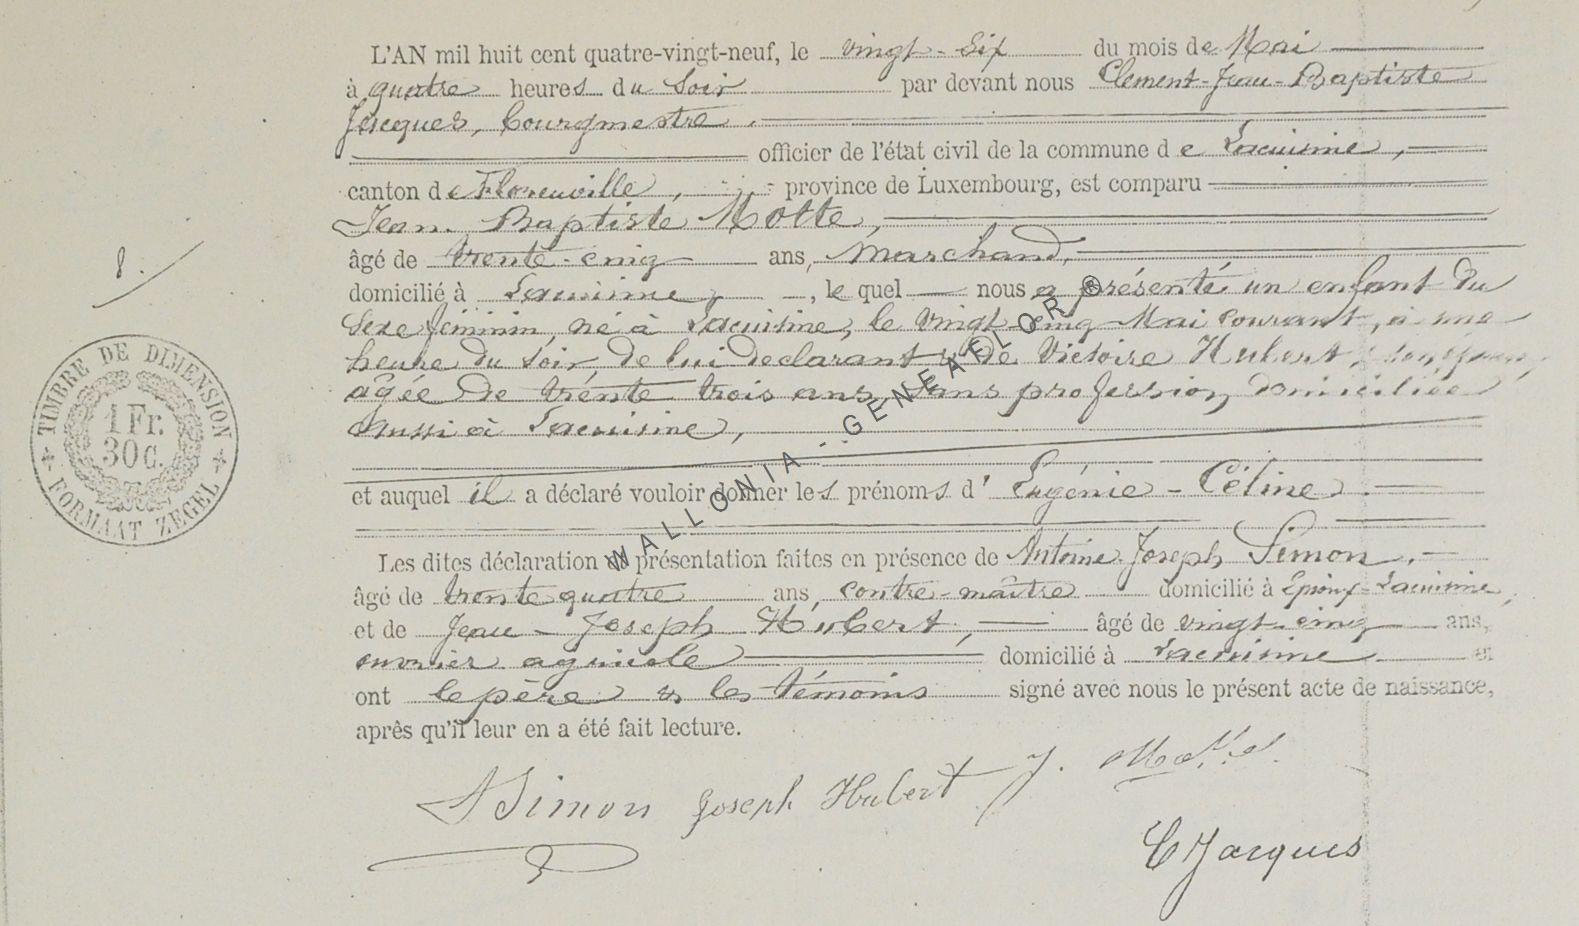 L'AN mil huit cent quatre-vingt-neuf, le vingt-six du mois de Mai
à quatre heures du soir par devant nous Clement-Jean-Baptiste
Jacques, Bourgmestre.
officier de l'état civil de la commune de Lacuisine,
canton de Florenville, province de Luxembourg, est comparu
Jean Baptiste Motte,
8.
âgé de trente-cinq ans, marchand,
domicilié à Lacuisine, le quel nous a présenté un enfant du
sexe féminin, né à Lacuisine, le vingt-cinq Mai courant, à une
heure du soir, de lui déclarant & de Victoire Hubert, son épouse,
âgée de trente trois ans, sans profession, domiciliée
aussi à Lacuisine,
TIMBRE DE DIMENSION
1 Fr.
30 C.
FORMAAT ZEGEL
et auquel il a déclaré vouloir donner les prénoms d'Eugénie-Céline.
Les dites déclaration et présentation faites en présence de Antoine-Joseph Simon,
âgé de trente quatre ans, contre-maître domicilié à Epioux-Lacuisine,
et de Jean-Joseph Hubert, âgé de vingt cinq ans,
ouvrier agricole domicilié à Lacuisine et
ont le père & les témoins signé avec nous le présent acte de naissance,
après qu'il leur en a été fait lecture.
A Simon Joseph Hubert J. Motte
C Jacques
WALLONIA - GENEAFLOR ®